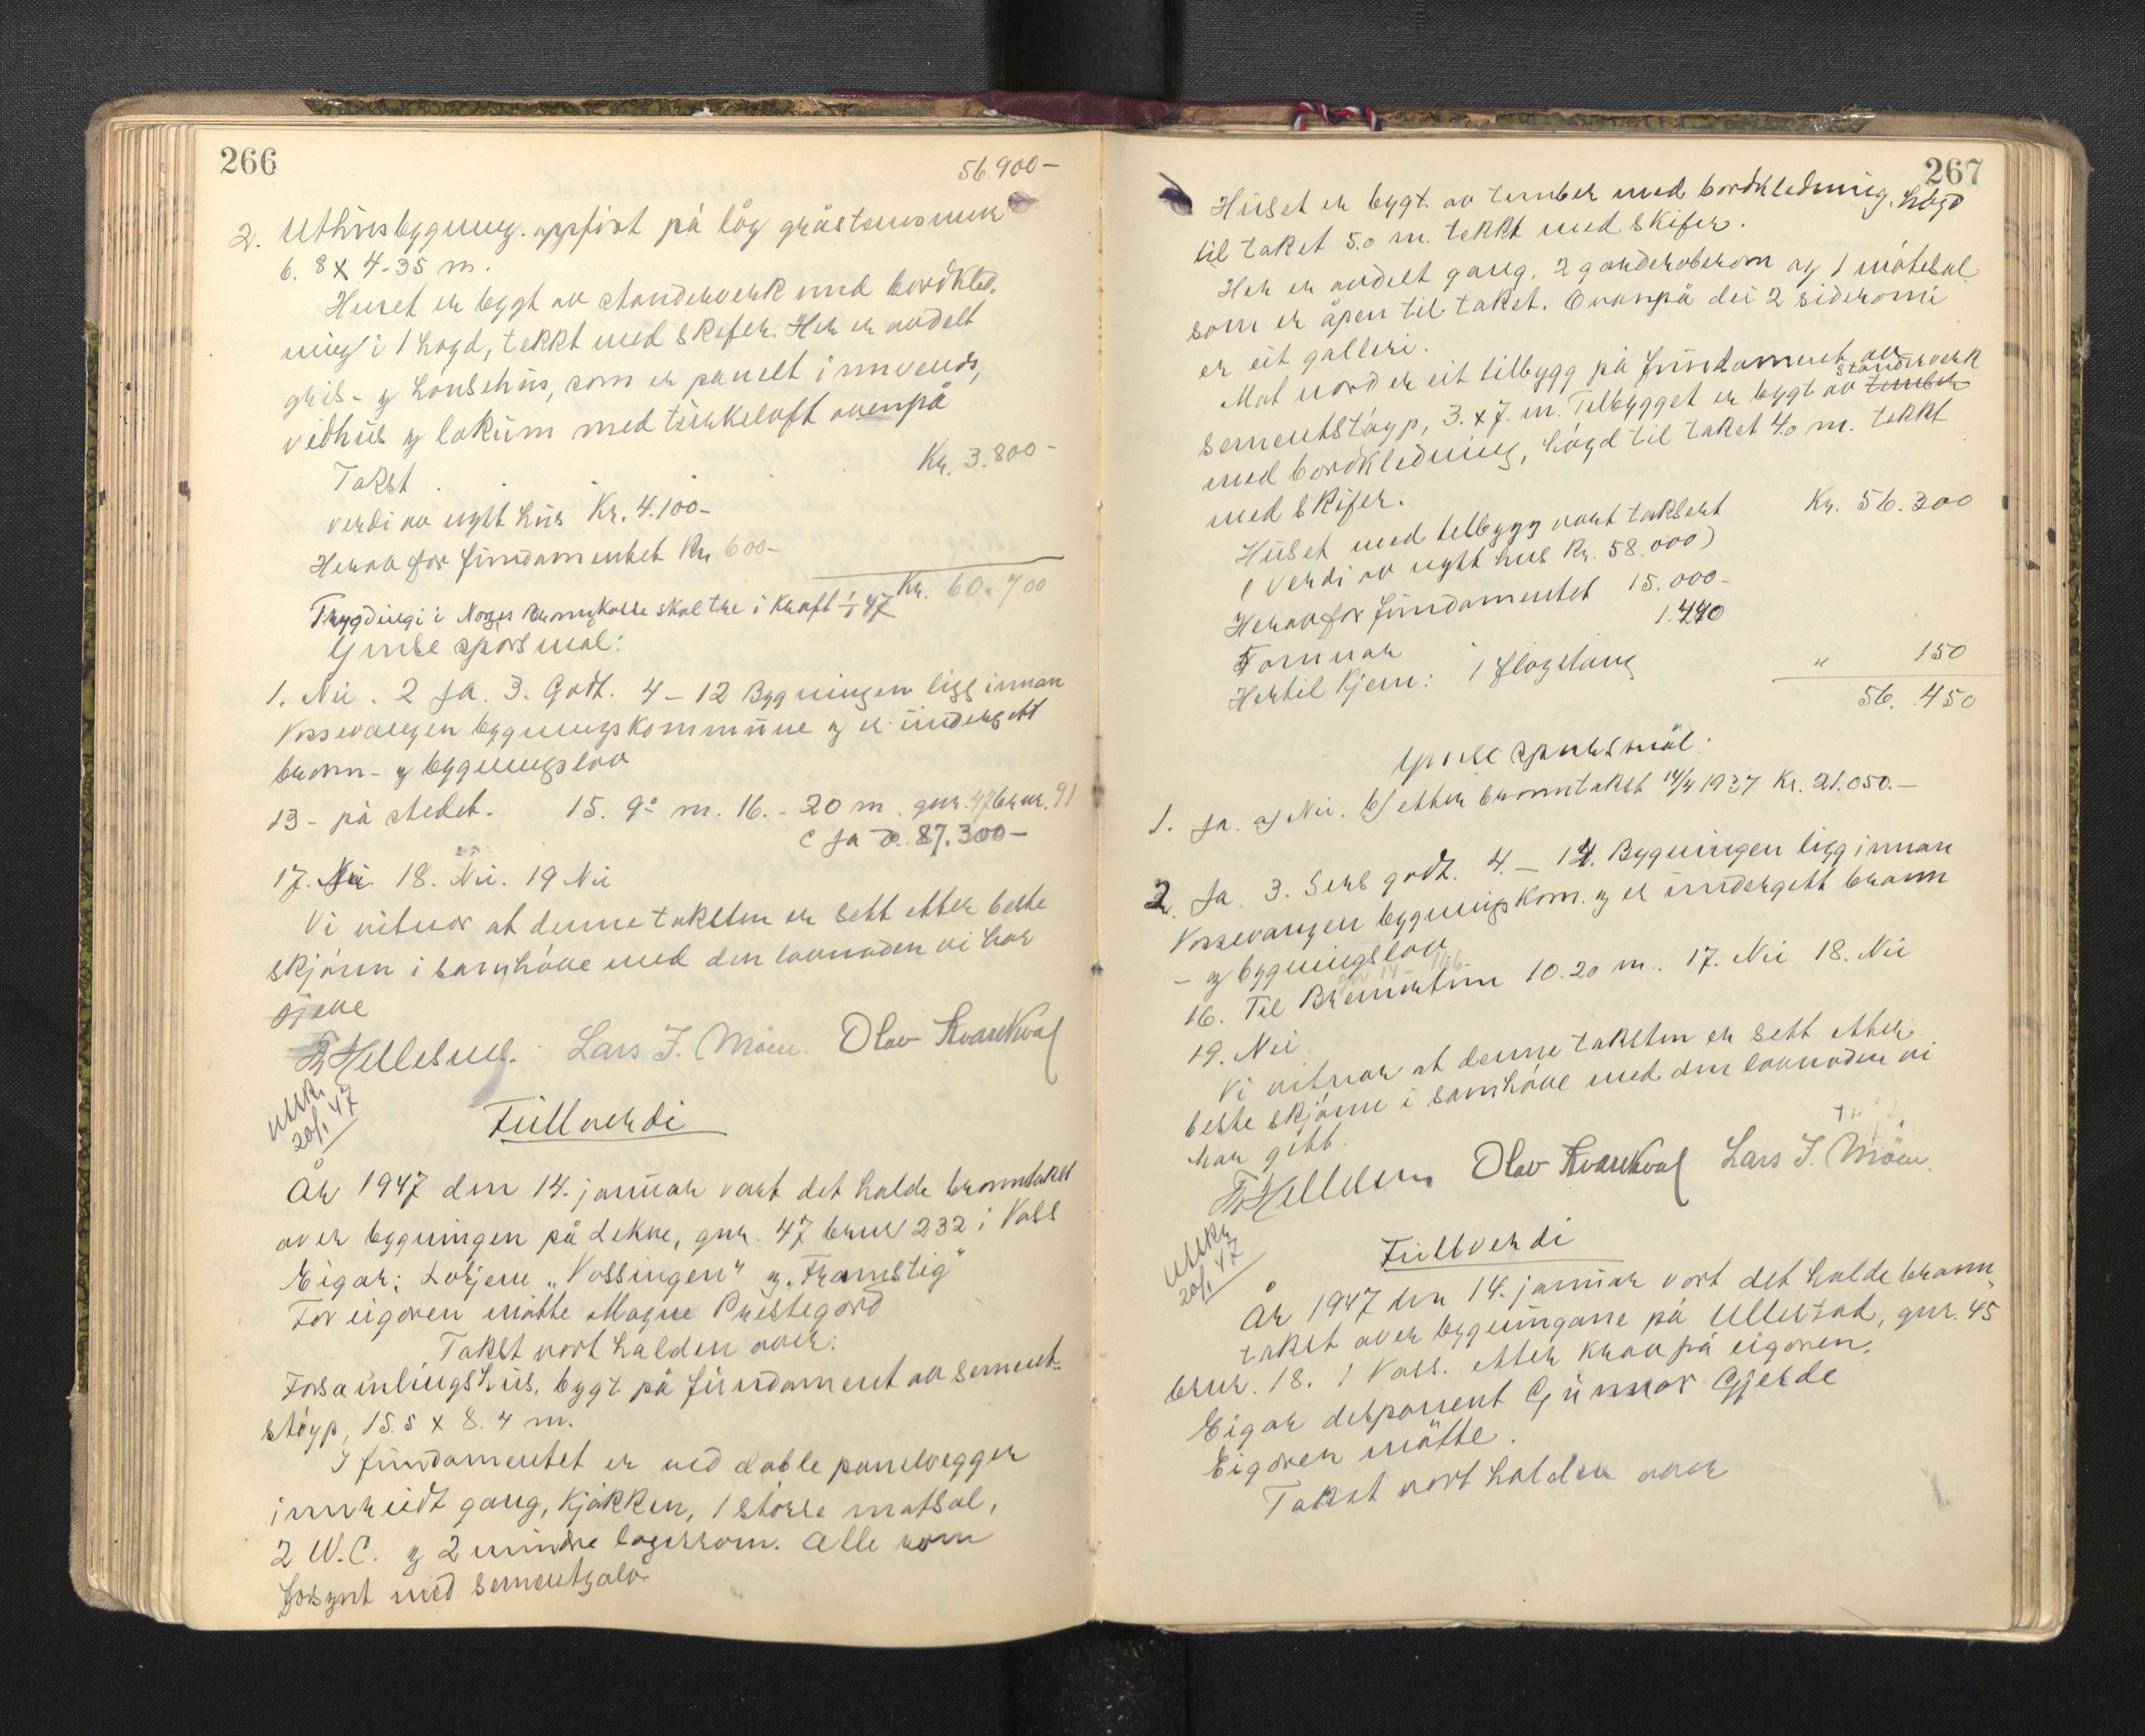 266
56.900-
2. Uthusbygning. oppført på låg gråsteinsmur
6.8 x 4.35 m.
Huset er bygt av standerverk med bordkled-
ning i 1 høgd, tekkt med skifer. Her er avdelt
gris- og hønsehus, som er panelt innvends,
vedhus og lokum med turkeloft ovenpå
Takst Kr. 3.800-
verdi av nytt hus Kr. 4.100-
Herav for fundamentet Kr 600-
Kr. 60.700
Trygdingi i Noregs Brannkasse skal tre i kraft 1/1 47
Ymse spørsmål:
1. Nei. 2 Ja. 3. Godt. 4-12 Bygningen ligg innan
Vossevangen bygningskommune og er undergitt
brann- og bygningslov
13- på stedet. 15. 9.0 m. 16. - 20 m. gnr. 47 brnr. 91
c Ja D. 87.300-
17. Nei. 18. Nei. 19 Nei
Vi vitnar at denne taksten er sett etter beste
skjønn i samhøve med den lovnaden vi har
gjeve
Lars J. Møen. Olav Kvarekval
Utskr.
20/1 47
Fullverdi
År 1947 den 14. januar vart det halde branntakst
over bygningen på Lekve, gnr. 47 brnr 232 i Voss
Eigar: Losjene "Vossingen" og "Framstig"
For eigaren møtte Magne Prestegard
Takst vart halden over:
Forsamlingshus, bygt på fundament av sement-
støyp, 15.5 x 8.4 m.
I fundamentet er ved doble panelvegger
innreidt gang, kjøkken, 1 større matsal,
2 W.C. og 2 mindre lagerrom. Alle rom
forsynt med sementgolv
267
Huset er bygt av tømber med bordkledning. høgd
til taket 5.0 m. tekkt med skifer.
Her er avdelt gang, 2 garderoberom og 1 møtesal
som er åpen til taket. Ovanpå dei 2 sideromi
er eit galleri.
Mot nord er eit tilbygg på fundament av
standerverk
sementstøyp, 3. x 7. m. Tilbygget er bygt av tømber
med bordkledning, høgd til taket 4.0 m. tekkt
med skifer.
Huset med tilbygg vart taksert Kr. 56.300
(Verdi av nytt hus Kr. 58.000)
Herav for fundamentet 15.000-
1.440
Hertil kjem: 1 flagstang " 150
56.450
Ymse spursmål:
1. Ja. a) Nei. b) etter branntakst 14/4 1937 Kr. 21.050.-
2. Ja. 3. Sers godt. 4. - 14. Bygningen ligg innan
Vossevangen bygningskom. og er undergitt brann
- og bygningslov
16. Til 10.20 m.. 17. Nei 18. Nei
19. Nei
Vi vitnar at denne taksten er sett etter
beste skjønn i samhøve med den lovnaden vi
har gitt.
Olav Kvarekval Lars J. Møen.
Utskr
20/1 47
Fullverdi
År 1947 den 14. januar vart det halde brann-
takst over bygningane på Ullestad, gnr. 45
brnr. 18. i Voss. etter krav frå eigaren.
Eigar disponent Gunnar Gjerde
Eigaren møtte.
Takst vart halden over